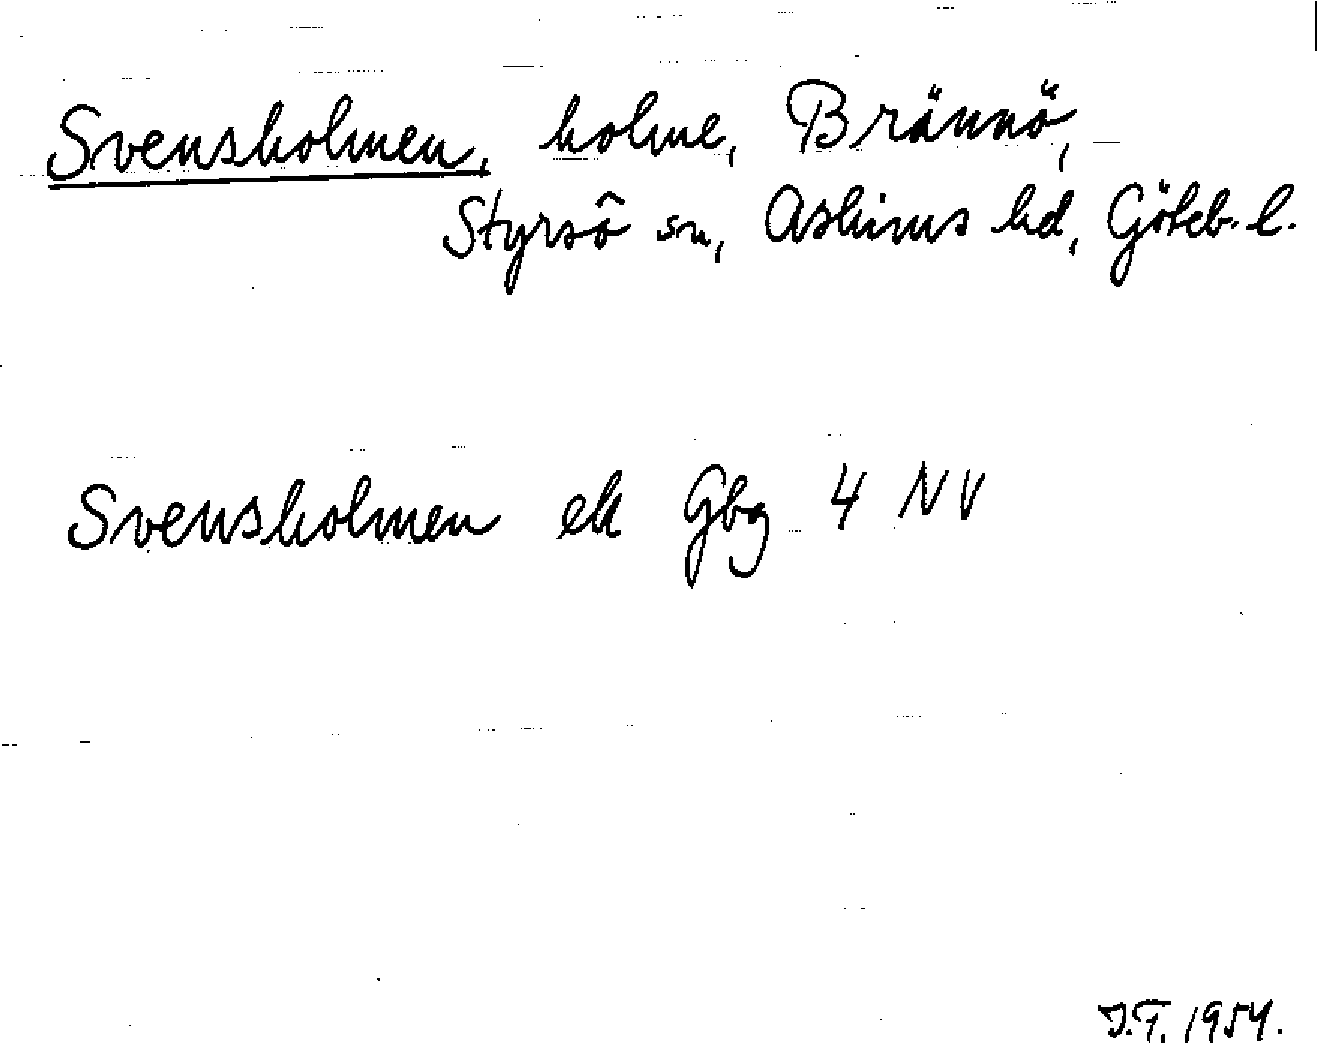 Svensholmen, holme, Brännö,
Styrsö sn, Askims hd, Göteb. l.
Svensholmen ek Gbg 4 NV
I.T. 1954.